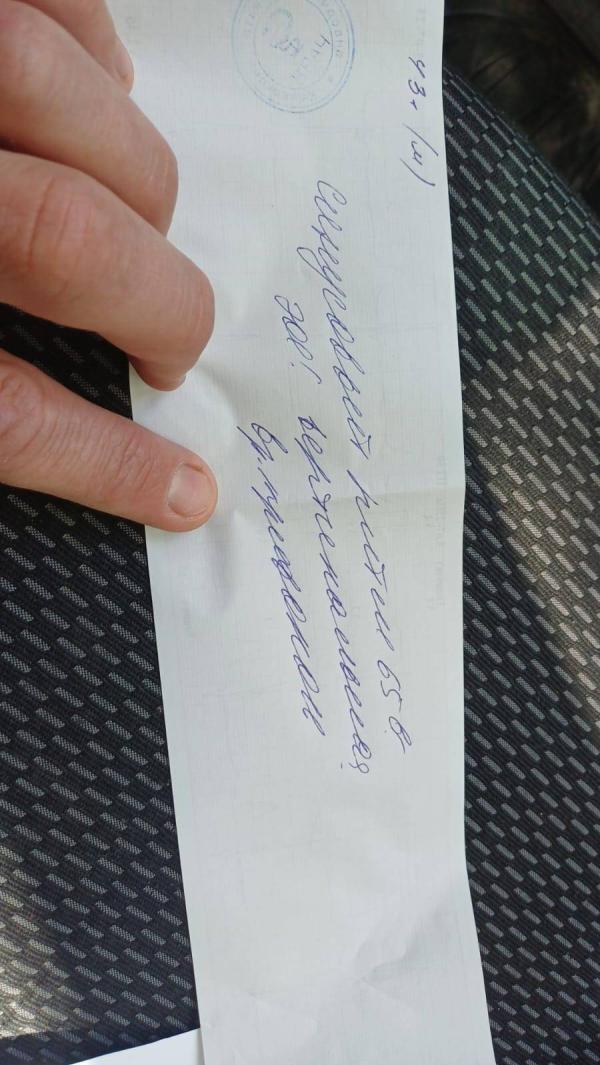 43г (м)
Синусовый ритм 65 в
ЭОС: вертикальная
вр. признаки